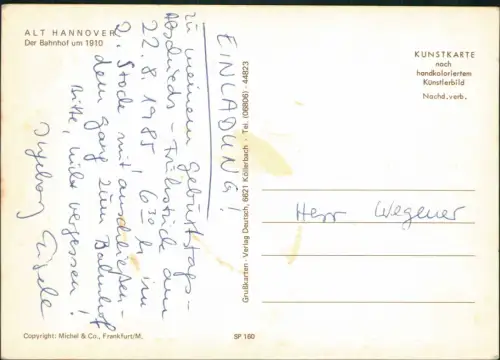 ALT HANNOVER
Der Bahnhof um 1910
EINLADUNG!
zu meinem Geburtstags-
Abschieds-Frühstück am
22.8.1985, 6³⁰ h im
2. Stock mit anschließen-
dem Gang zum Bahnhof
bitte, nicht vergessen!
Ingeborg
Grußkarten-Verlag Deutsch, 6621 Köllerbach · Tel. (06806) 44823
KUNSTKARTE
nach
handkoloriertem
Künstlerbild
Nachd. verb.
Herr Wegener
Copyright: Michel & Co., Frankfurt/M.
SP 160